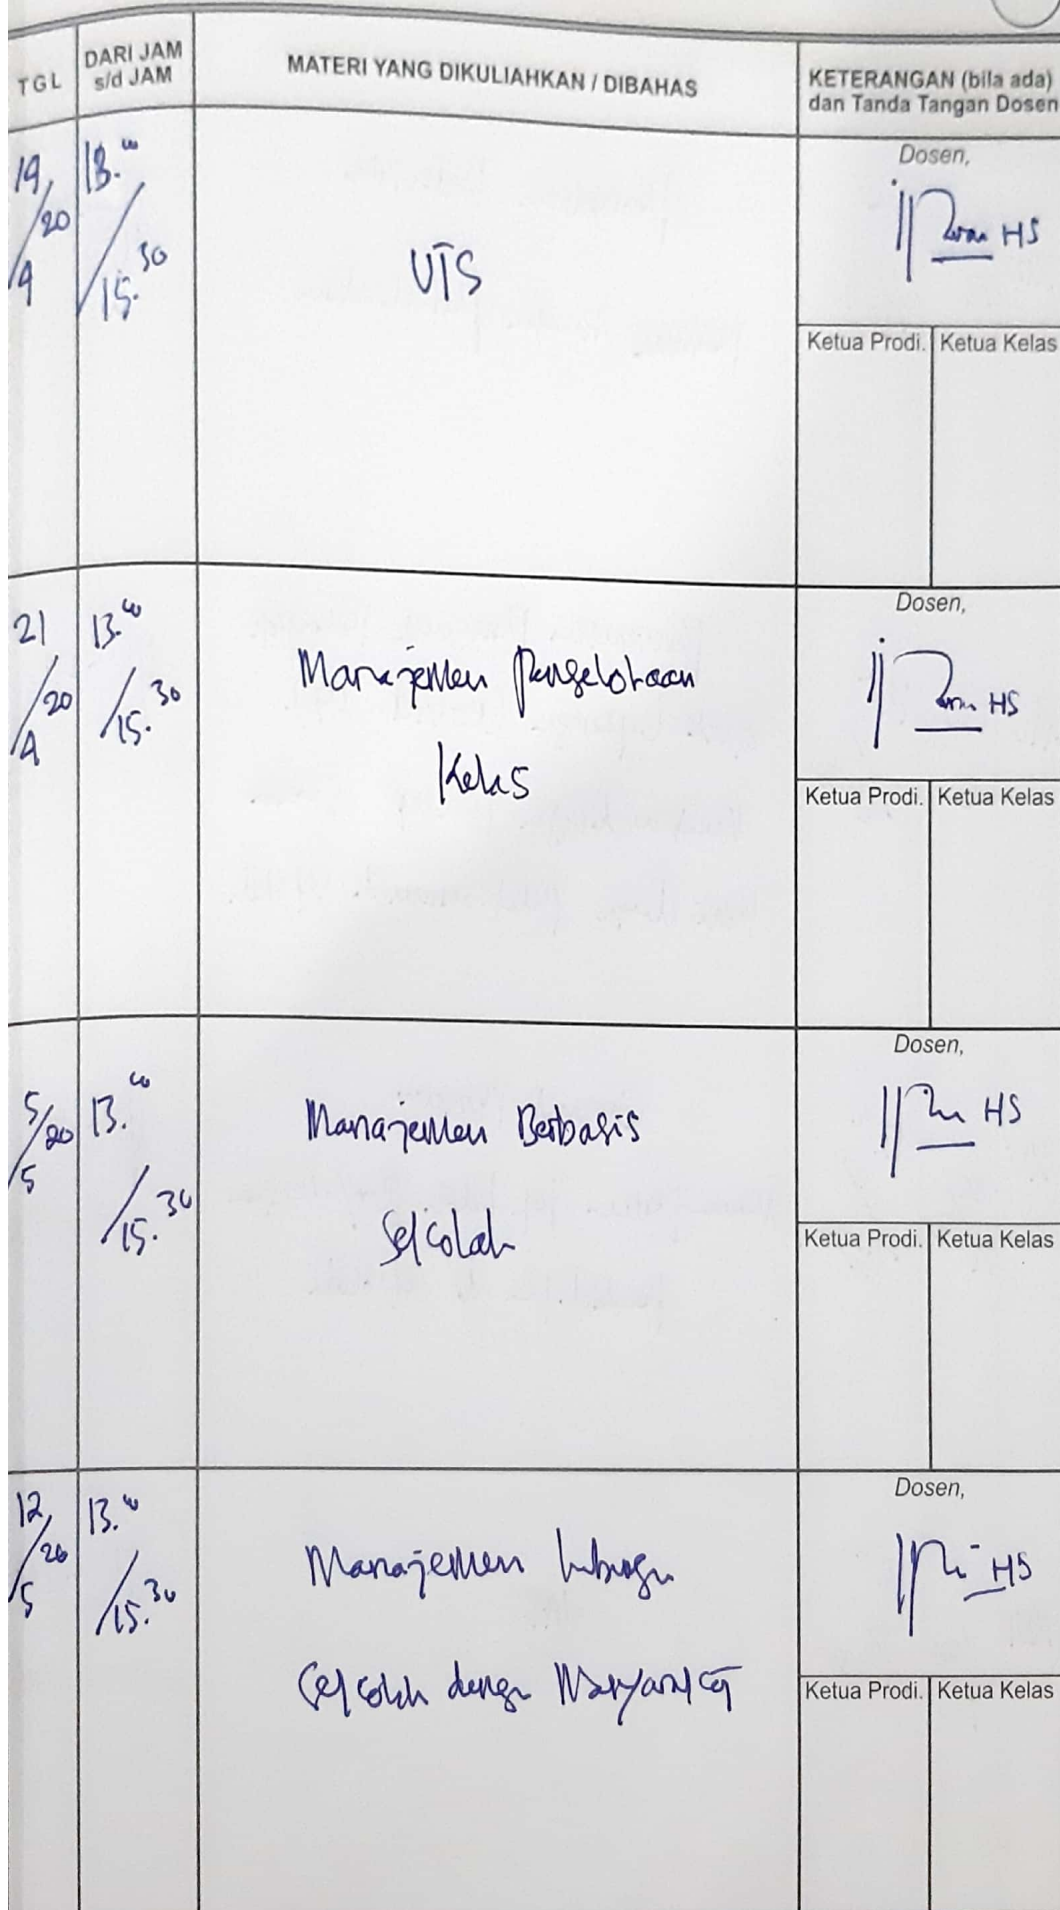 TGL
DARI JAM
s/d JAM
MATERI YANG DIKULIAHKAN / DIBAHAS
KETERANGAN (bila ada)
dan Tanda Tangan Dosen
19/4 20
13.00 / 15.30
UTS
Dosen,
HS
Ketua Prodi. Ketua Kelas
21/4 20
13.00 / 15.30
Manajemen Pengelolaan
Kelas
Dosen,
HS
Ketua Prodi. Ketua Kelas
5/5 20
13.00 / 15.30
Manajemen Berbasis
Sekolah
Dosen,
HS
Ketua Prodi. Ketua Kelas
12/5 20
13.00 / 15.30
Manajemen Hubungan
Sekolah dengan Masyarakat
Dosen,
HS
Ketua Prodi. Ketua Kelas